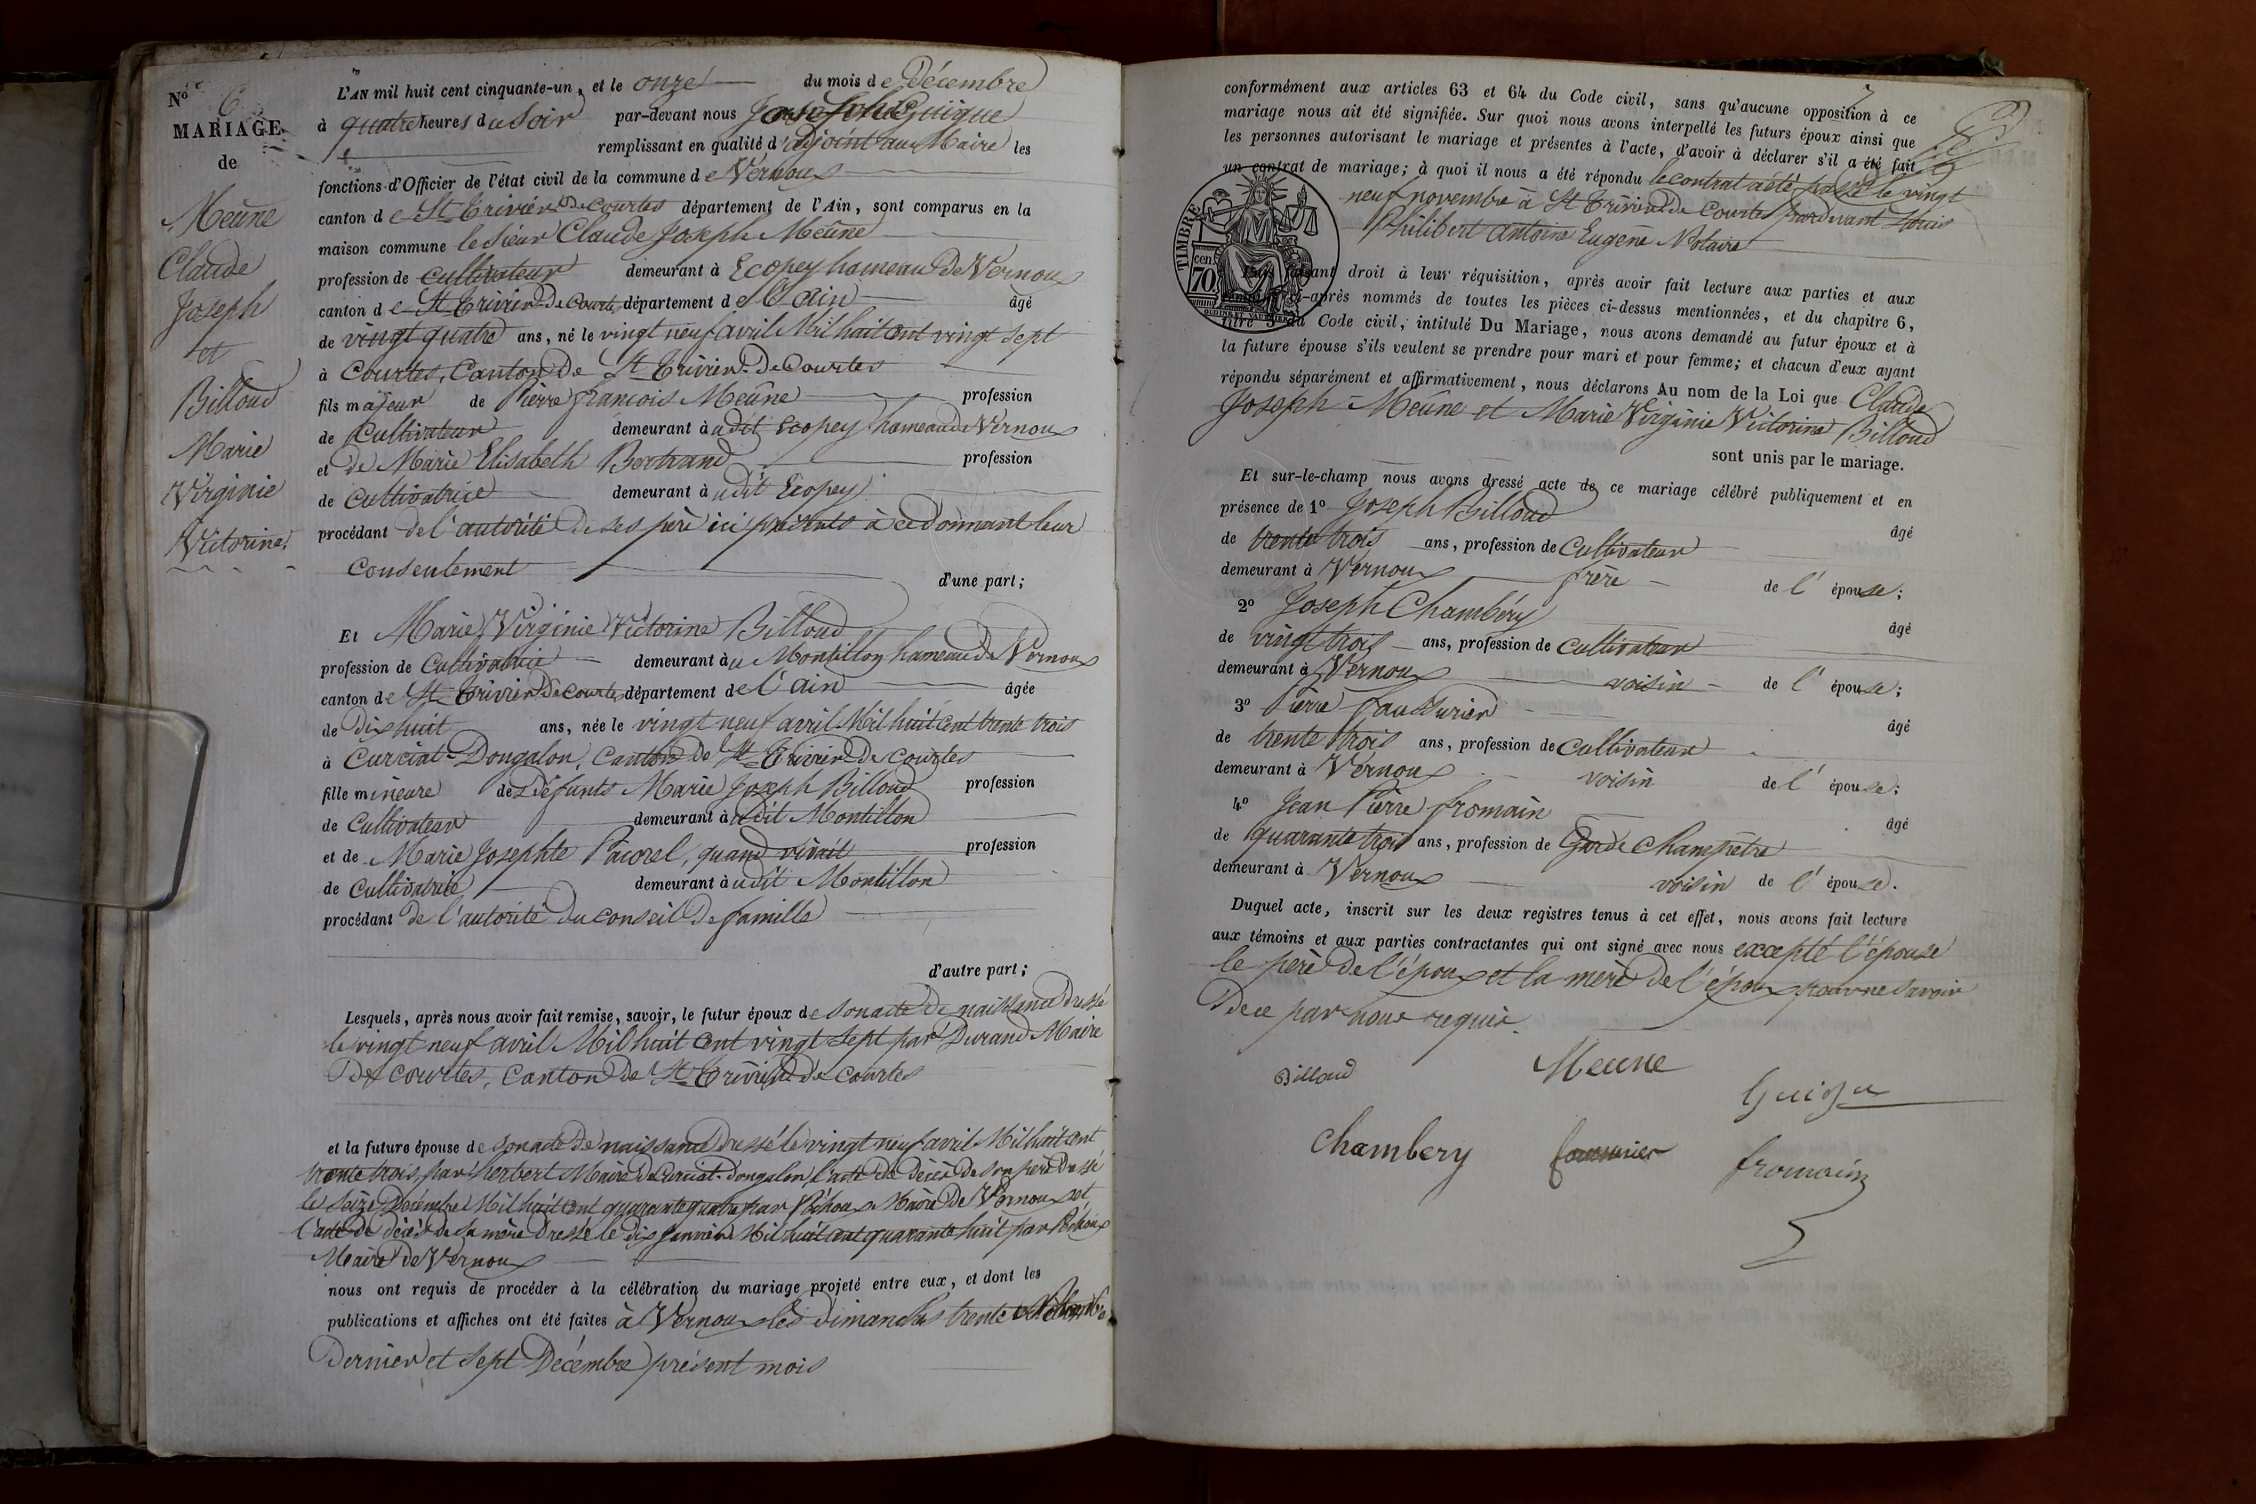 No 6
MARIAGE
de
Meûne
Claude
Joseph
et
Billoud
Marie
Virginie
Victorine.
L'AN mil huit cent cinquante-un, et le onze du mois de Décembre
à quatre heures du soir par-devant nous Guigue
remplissant en qualité d'adjoint au Maire les
fonctions d'Officier de l'état civil de la commune de Vernoux
canton de St Trivier de Courtes département de l'Ain, sont comparus en la
maison commune le sieur Claude Joseph Meûne
profession de cultivateur demeurant à Ecopey hameau de Vernoux
canton de St Trivier de Courtes département de l'Ain âgé
de vingt quatre ans, né le vingt neuf avril Mil huit cent vingt sept
à Courtes, Canton de St Trivier de Courtes
fils majeur de Pierre françois Meûne profession
de Cultivateur demeurant audit Ecopey hameau de Vernoux
et de Marie Elisabeth Bertrand profession
de cultivatrice demeurant audit Ecopey
procédant de l'autorité de ses père ici présents à ce donnant leur
consentement
d'une part;
Et Marie Virginie Victorine Billoud
profession de Cultivatrice demeurant au Montillon hameau de Vernoux
canton de St Trivier de Courtes département de l'ain âgée
de dix huit ans, née le vingt neuf avril Mil huit cent trente trois
à Curciat-Dongalon, Canton de St Trivier de Courtes
fille mineure des défunts Marie Joseph Billoud profession
de Cultivateur demeurant audit Montillon
et de Marie Josephte Pacorel, quand vivait profession
de cultivatrice demeurant audit Montillon
procédant de l'autorité du conseil de famille
d'autre part;
Lesquels, après nous avoir fait remise, savoir, le futur époux de son acte de naissance dressé
le vingt neuf avril Mil huit cent vingt sept par Durand Maire
de Courtes, Canton de St Trivier de Courtes
et la future épouse de son acte de naissance dressé le vingt neuf avril Mil huit cent
trente trois, par herbert Maire de Curciat-Dongalon, l'acte de décès de son père dressé
le seize Décembre Mil huit cent quarante quatre par Maire de Vernoux et
l'acte de décès de sa mère dressé le dix Janvier Mil huit cent quarante huit par
Maire de Vernoux
nous ont requis de procéder à la célébration du mariage projeté entre eux, et dont les
publications et affiches ont été faites à Vernoux les dimanches trente Novembre
dernier et sept Décembre présent mois
7
conformément aux articles 63 et 64 du Code civil, sans qu'aucune opposition à ce
mariage nous ait été signifiée. Sur quoi nous avons interpellé les futurs époux ainsi que
les personnes autorisant le mariage et présentes à l'acte, d'avoir à déclarer s'il a été fait
un contrat de mariage; à quoi il nous a été répondu le contrat a été passé le vingt
neuf novembre à St Trivier de Courtes pardevant Louis
Philibert Antoine Eugene Notaire
TIMBRE
70 cen
Puis faisant droit à leur réquisition, après avoir fait lecture aux parties et aux
témoins ci-après nommés de toutes les pièces ci-dessus mentionnées, et du chapitre 6,
titre 5 du Code civil, intitulé Du Mariage, nous avons demandé au futur époux et à
la future épouse s'ils veulent se prendre pour mari et pour femme; et chacun d'eux ayant
répondu séparément et affirmativement, nous déclarons Au nom de la Loi que Claude
Joseph Meûne et Marie Virginie Victorine Billoud
sont unis par le mariage.
Et sur-le-champ nous avons dressé acte de ce mariage célébré publiquement et en
présence de 1o Joseph Billoud âgé
de trente trois ans, profession de cultivateur
demeurant à Vernoux frère de l'épouse;
2o Joseph Chambéry âgé
de vingt trois ans, profession de cultivateur
demeurant à Vernoux voisin de l'épouse;
3o Pierre âgé
de trente trois ans, profession de cultivateur
demeurant à Vernoux voisin de l'épouse;
4o Jean Pierre fromain âgé
de quarante trois ans, profession de Garde Champêtre
demeurant à Vernoux voisin de l'épouse.
Duquel acte, inscrit sur les deux registres tenus à cet effet, nous avons fait lecture
aux témoins et aux parties contractantes qui ont signé avec nous excepté l'épouse
le père de l'époux et la mère de l'époux pour ne savoir
de ce par nous requis.
Billoud Meune Guigue
Chambery fromain